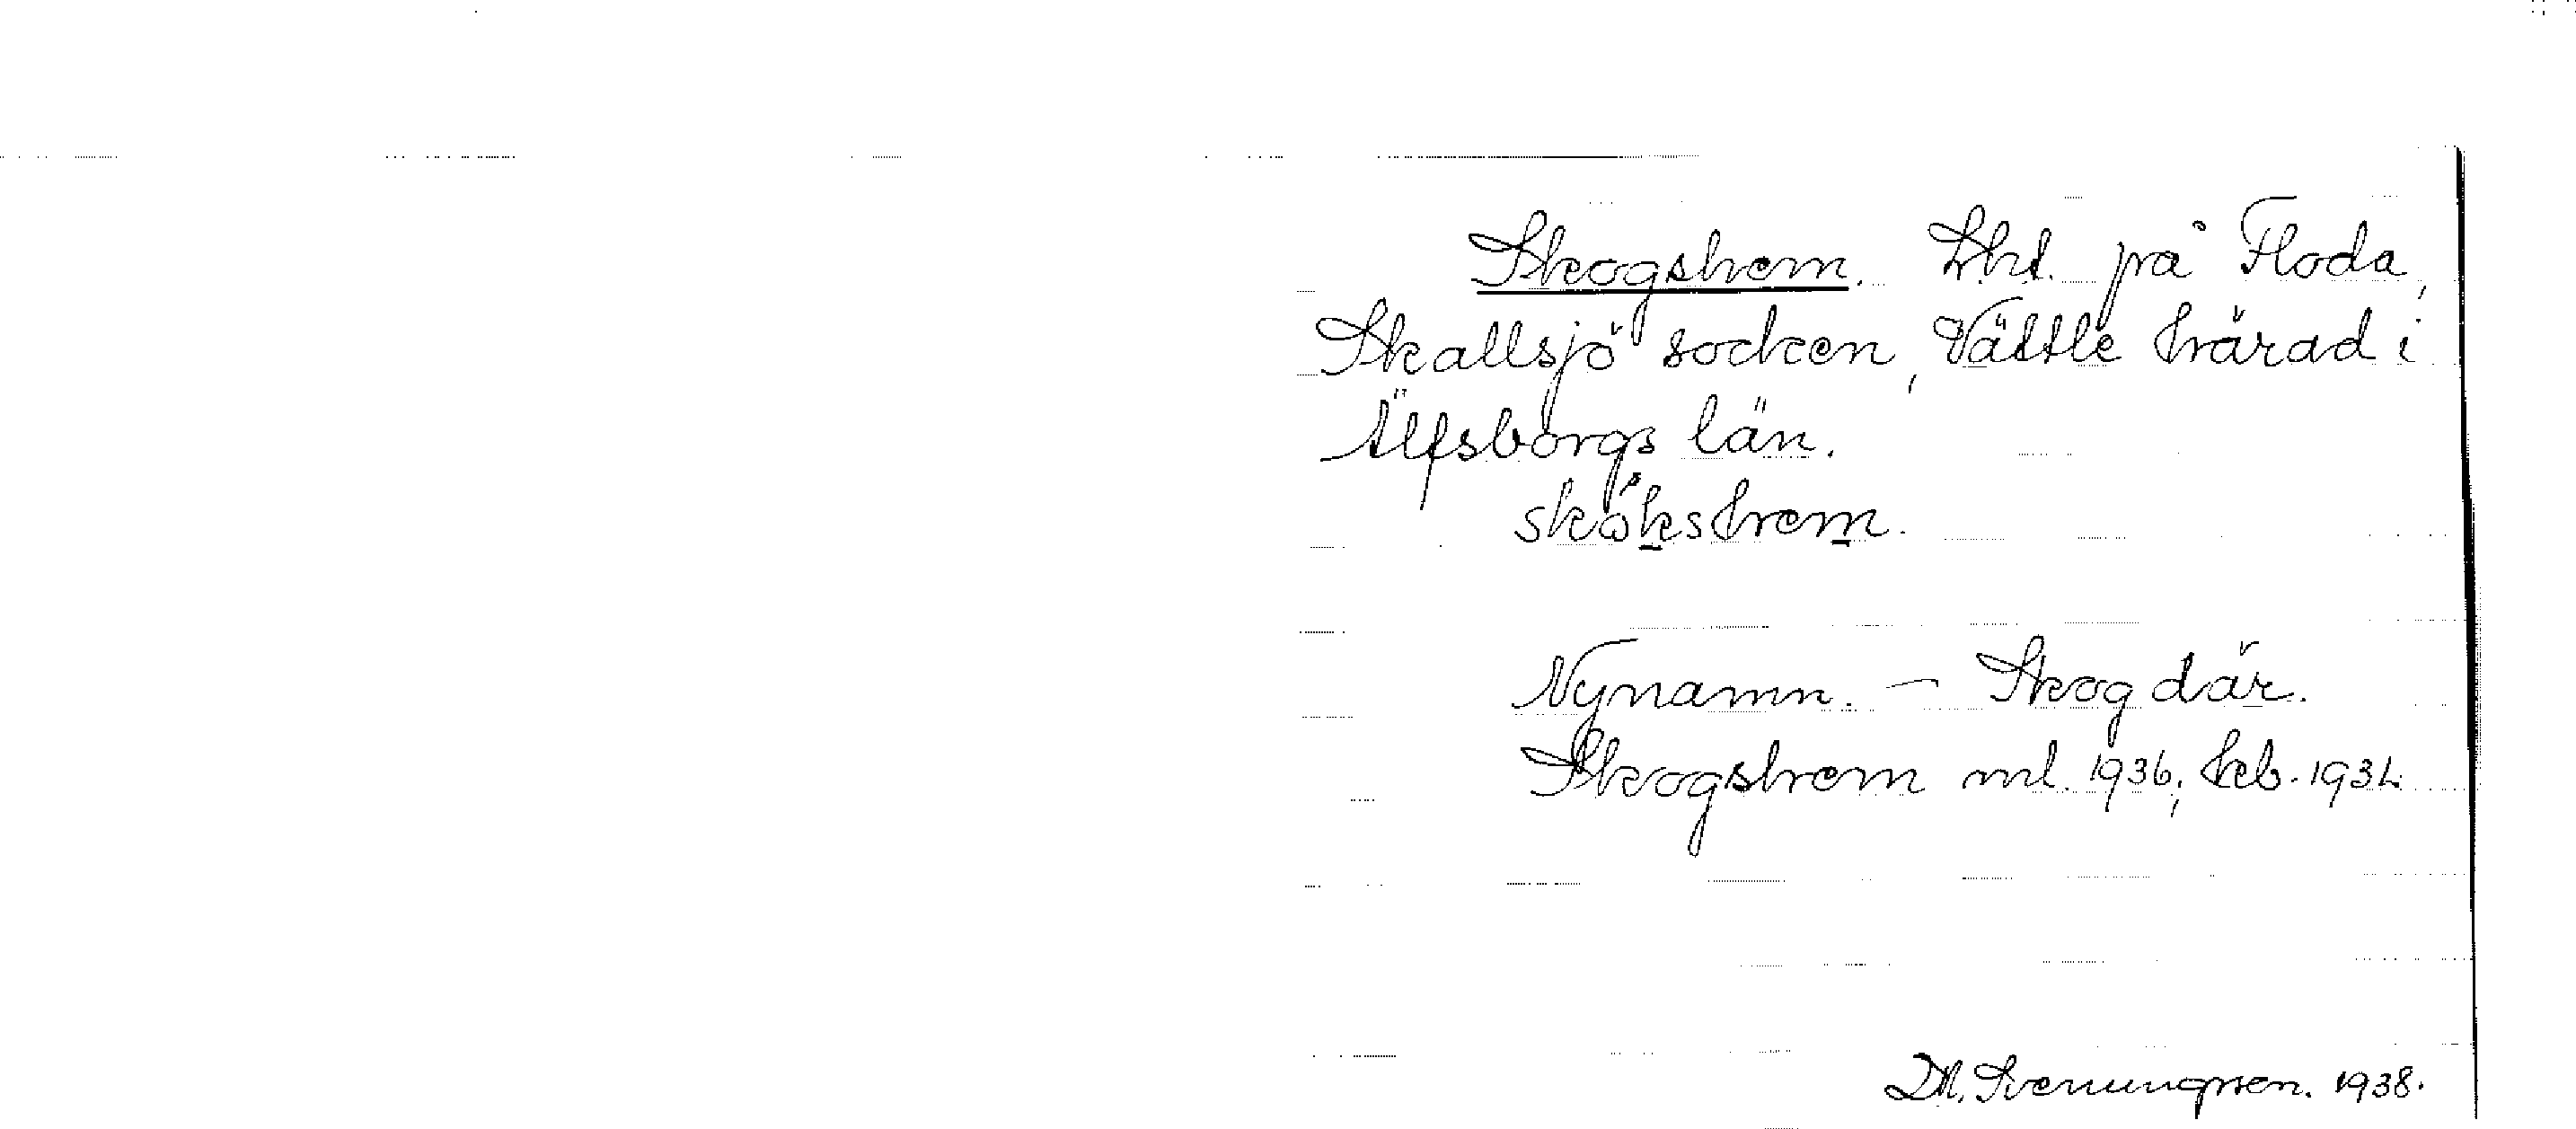 Skogshem. Lht. på Floda,
Skallsjö socken, Vättle härad i
Älfsborgs län.
skökshem.
Nynamn. – Skog där.
Skogshem ml. 1936; kb. 1931.
D.M. Svenungsson. 1938.